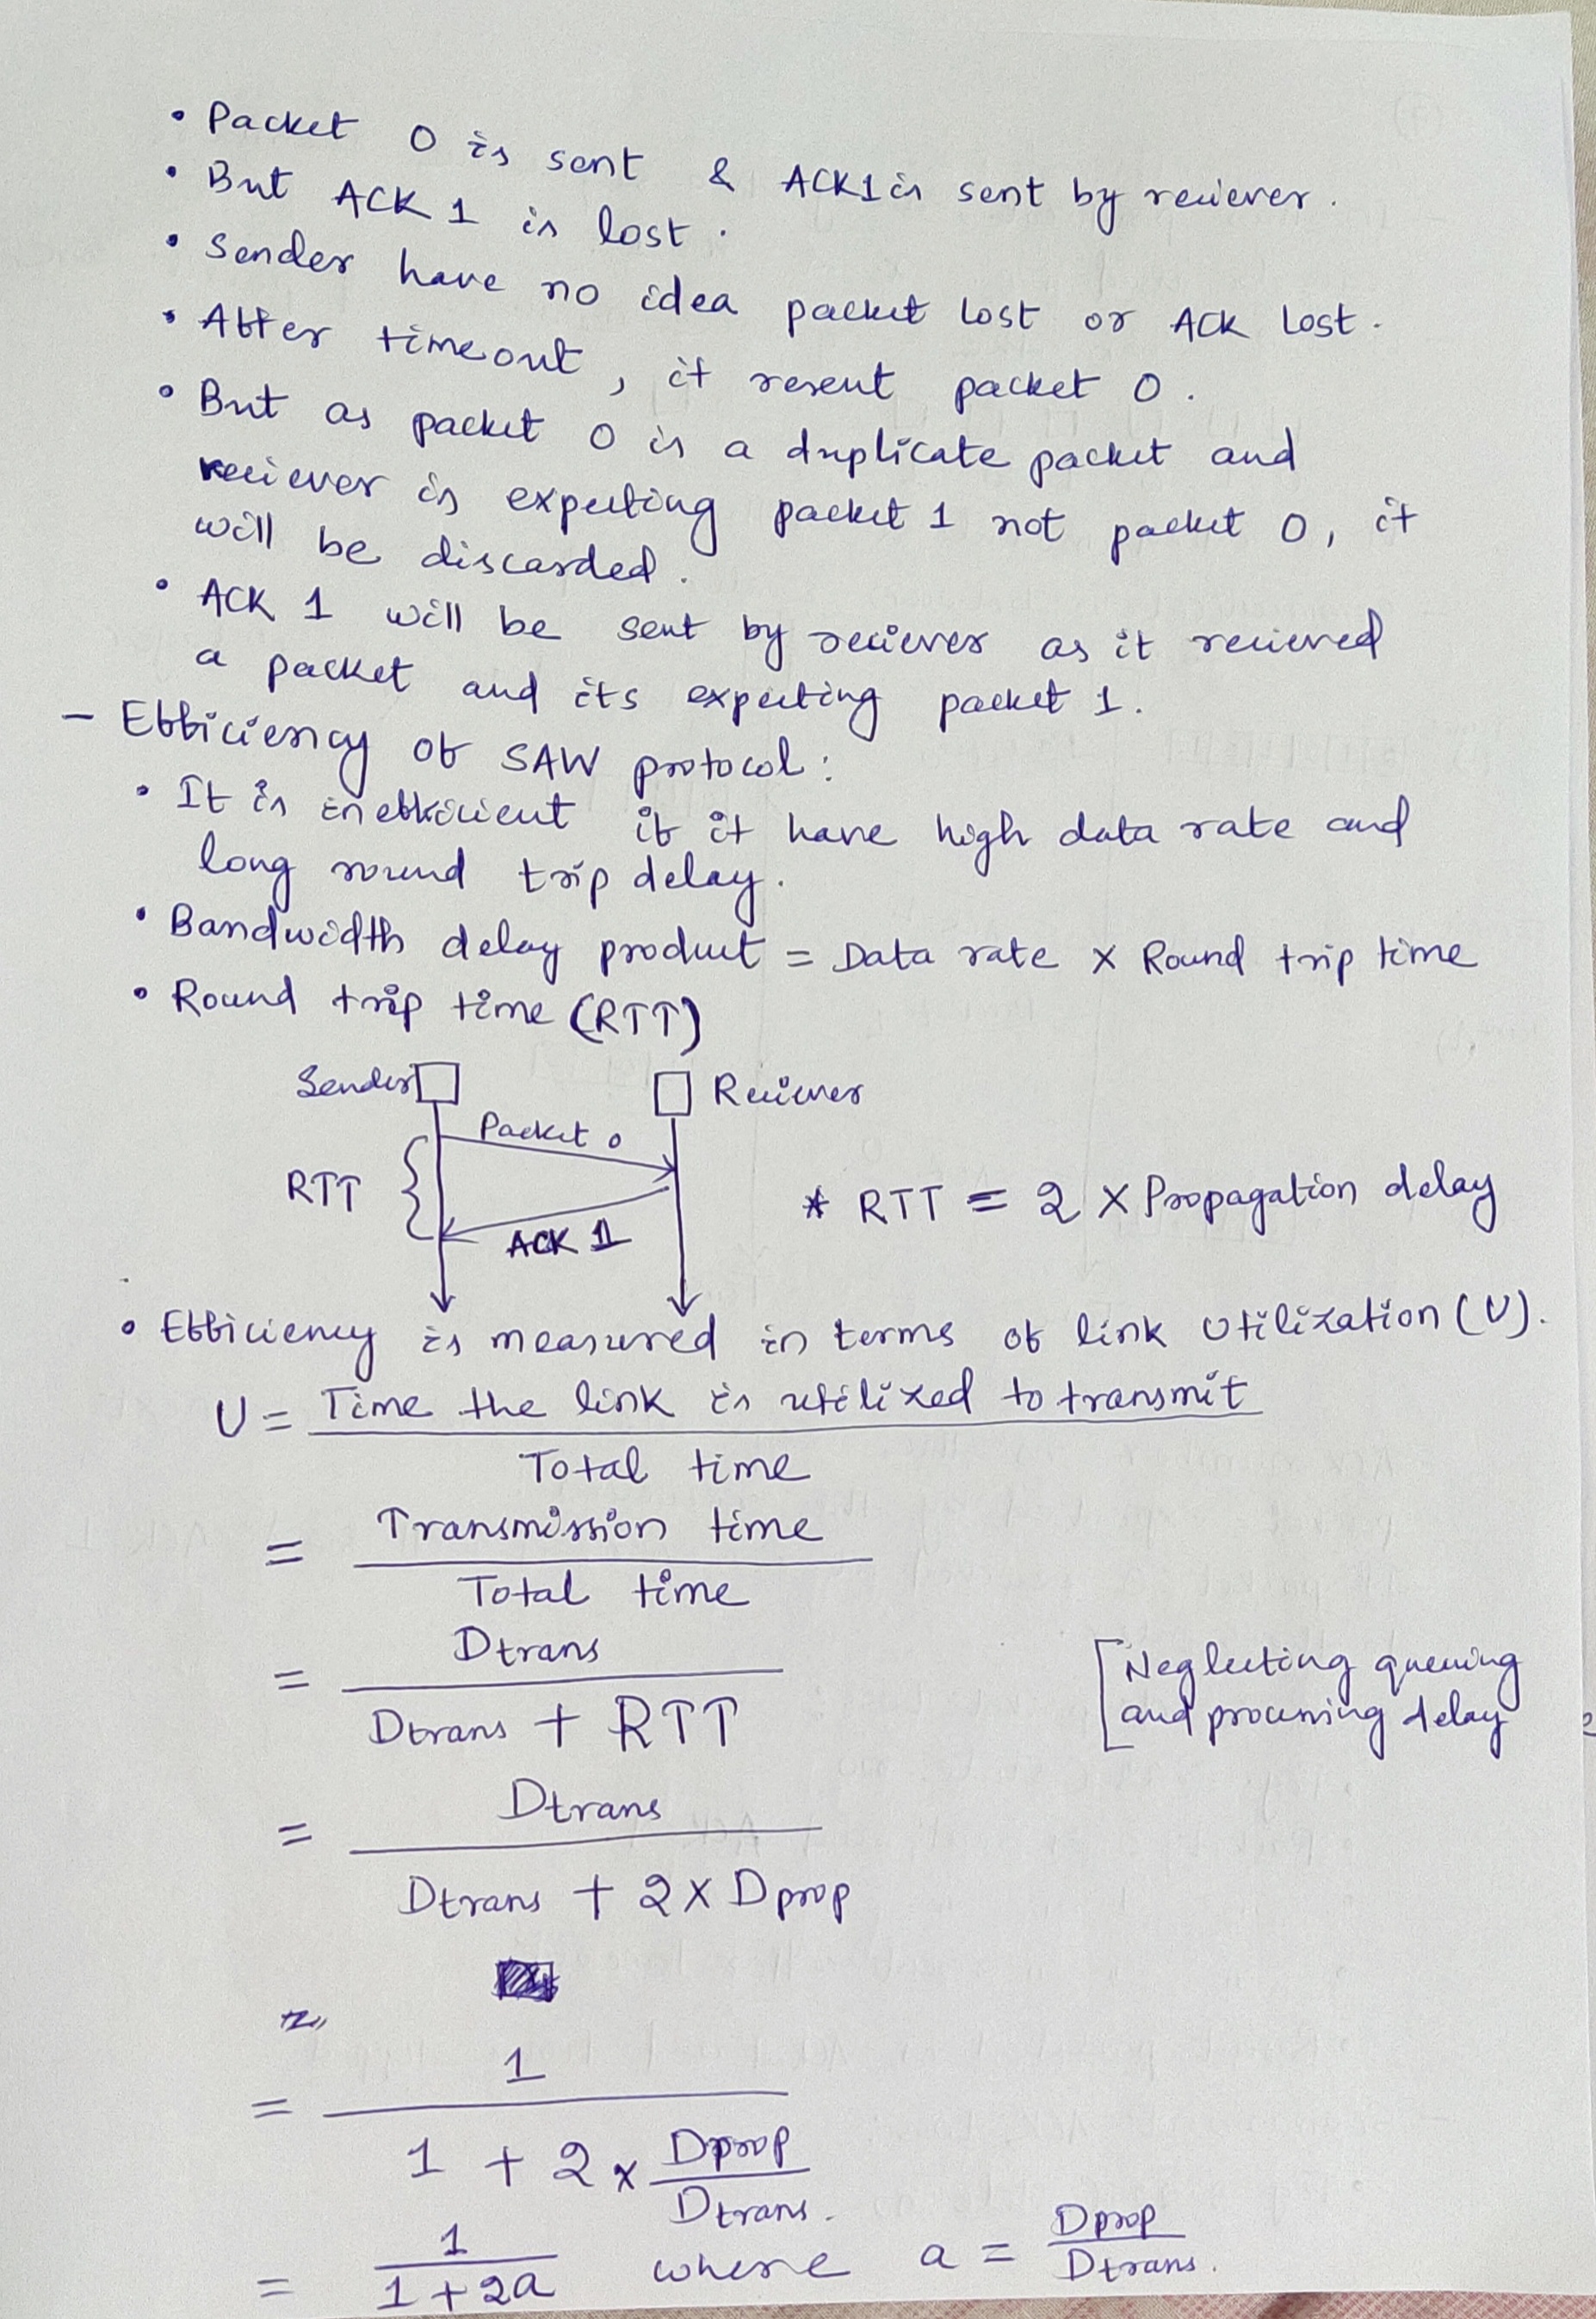 • Packet 0 is sent & ACK1 is sent by reciever.
• But ACK 1 is lost.
• Sender have no idea packet lost or ACK lost.
• After timeout, it resent packet 0.
• But as packet 0 is a duplicate packet and
reciever is expecting packet 1 not packet 0, it
will be discarded.
• ACK 1 will be sent by reciever as it recieved
a packet and its expecting packet 1.
- Efficiency of SAW protocol:
• It is inefficient if it have high data rate and
long round trip delay.
• Bandwidth delay product = Data rate × Round trip time
• Round trip time (RTT)
Sender Reciever
Packet 0
RTT
* RTT = 2 × Propagation delay
ACK 1
• Efficiency is measured in terms of link Utilization (U).
U = Time the link is utilized to transmit
Total time
= Transmission time
Total time
= Dtrans
Dtrans + RTT
[Neglecting queuing
and processing delay
= Dtrans
Dtrans + 2 × Dprop
= 1
1 + 2 × Dprop
Dtrans.
= 1 where a = Dprop
1 + 2a Dtrans.